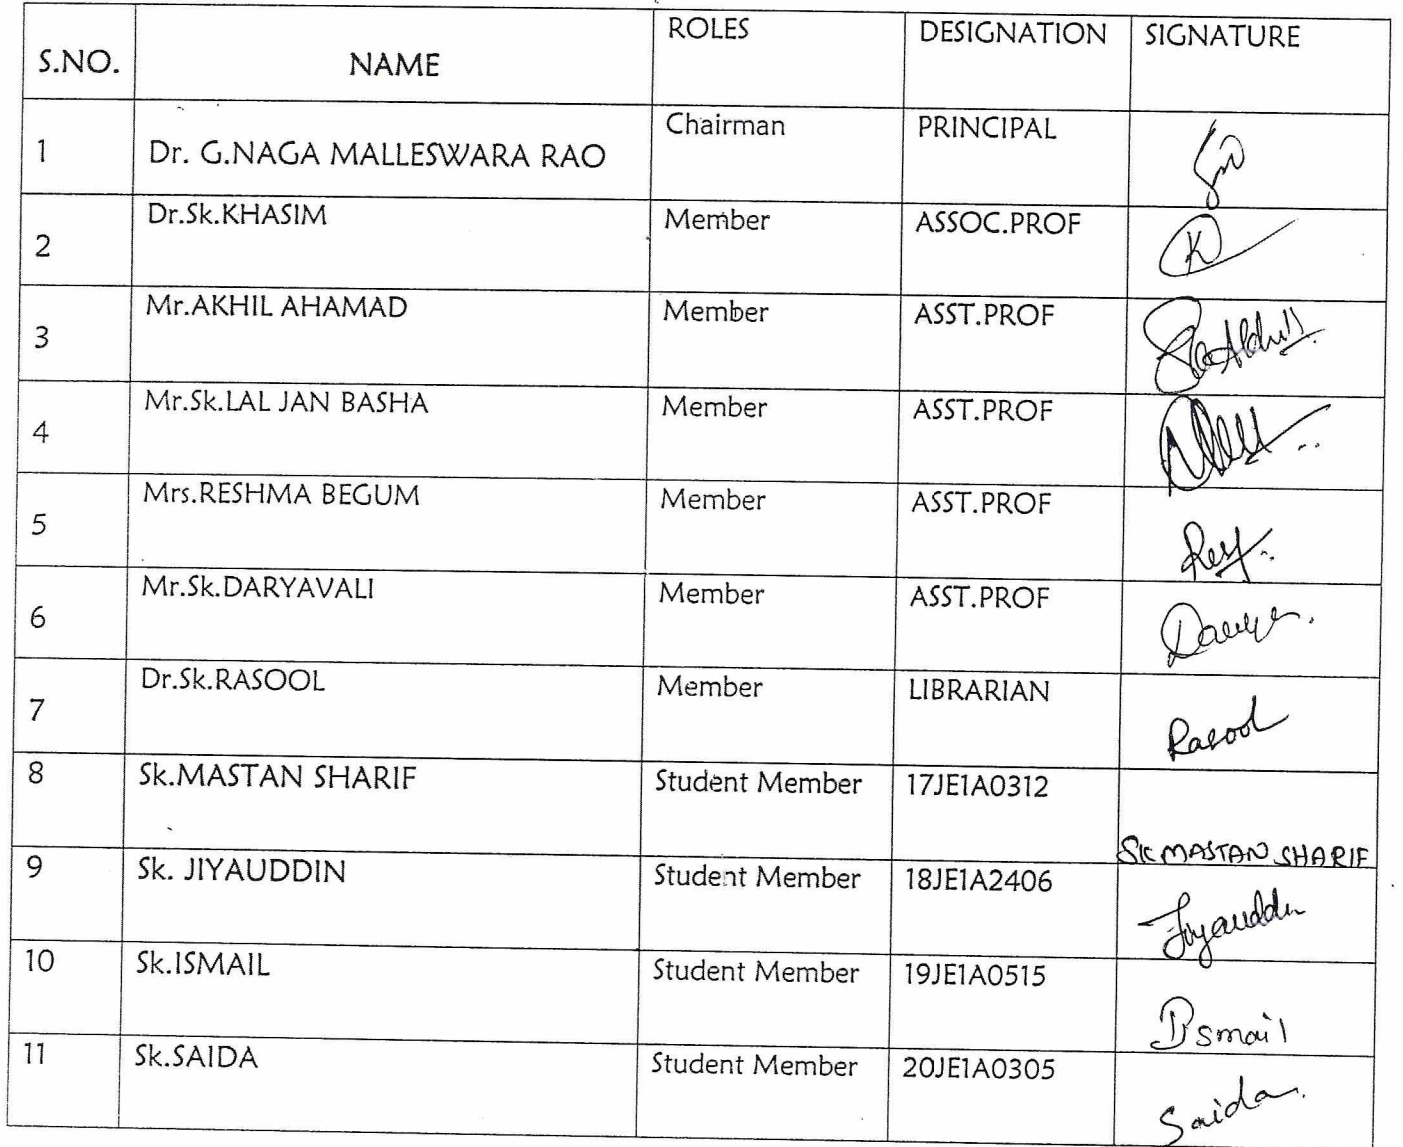 S.NO. NAME ROLES DESIGNATION SIGNATURE
1 Dr. G.NAGA MALLESWARA RAO Chairman PRINCIPAL
2 Dr.Sk.KHASIM Member ASSOC.PROF K
3 Mr.AKHIL AHAMAD Member ASST.PROF
4 Mr.Sk.LAL JAN BASHA Member ASST.PROF
5 Mrs.RESHMA BEGUM Member ASST.PROF
6 Mr.Sk.DARYAVALI Member ASST.PROF
7 Dr.Sk.RASOOL Member LIBRARIAN Rasool
8 Sk.MASTAN SHARIF Student Member 17JE1A0312 SK MASTAN SHARIF
9 Sk. JIYAUDDIN Student Member 18JE1A2406 Jiyauddin
10 Sk.ISMAIL Student Member 19JE1A0515 Ismail
11 Sk.SAIDA Student Member 20JE1A0305 Saida.